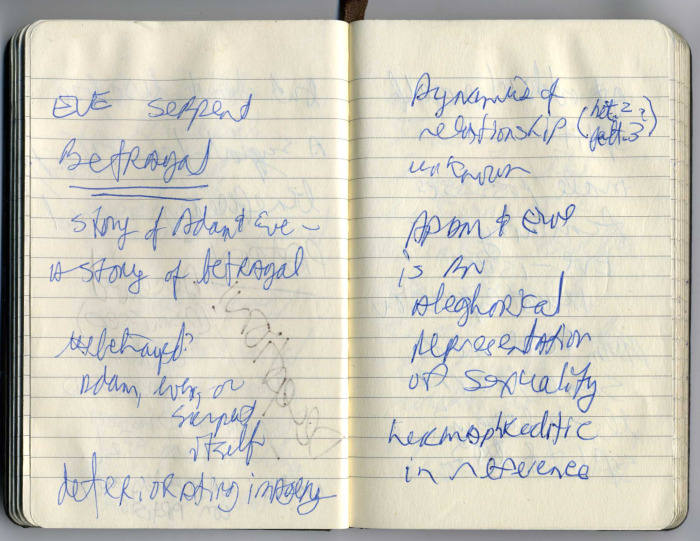 EVE serpent
Betrayal
story of Adam & Eve –
A story of betrayal
betrayed?
Adam, eve, or
serpent
itself
deteriorating imagery
Dynamics of
relationship (
unknown
ADAM & EVE
is AN
Aleghorical
representation
of sexuality
hermaphreditic
in reference